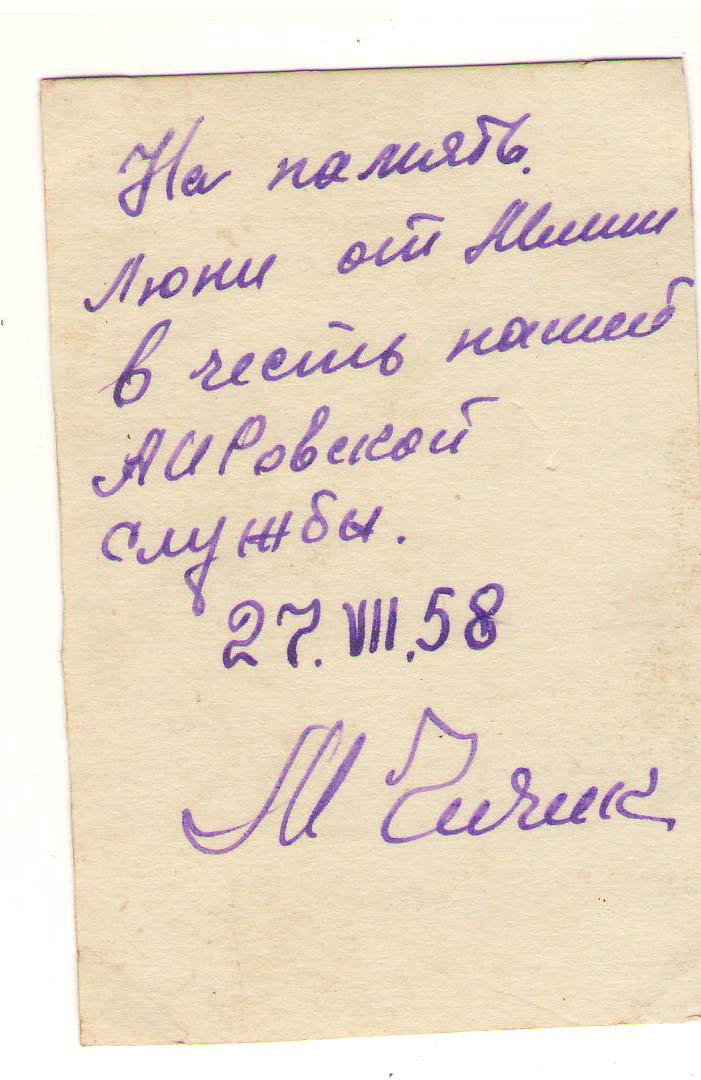 На память
Люни от Миши
в честь нашей
АИРовской
службы.
27.VII.58
М Чичик